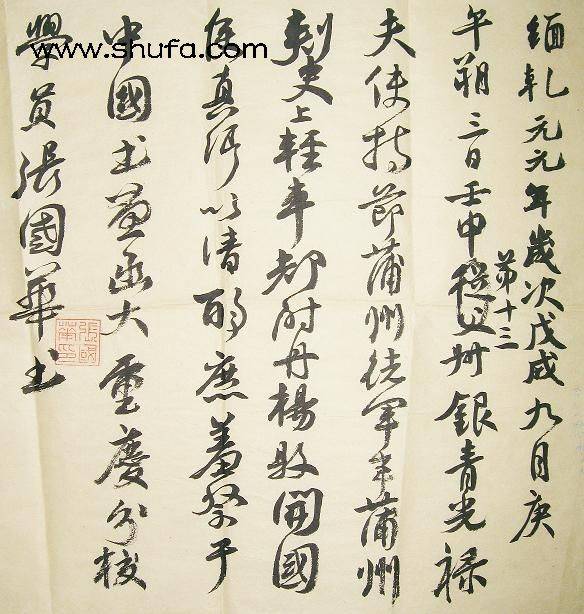 www.shufa.com
維乾元元年歲次戊戌九月庚
午朔三日壬申
第十三
銀青光祿
夫使持節蒲州諸軍事蒲州
刺史上輕車都尉丹楊縣開國
侯真卿以清酌庶羞祭于
中國书画函大重慶分校
學員張國華书
張國華印